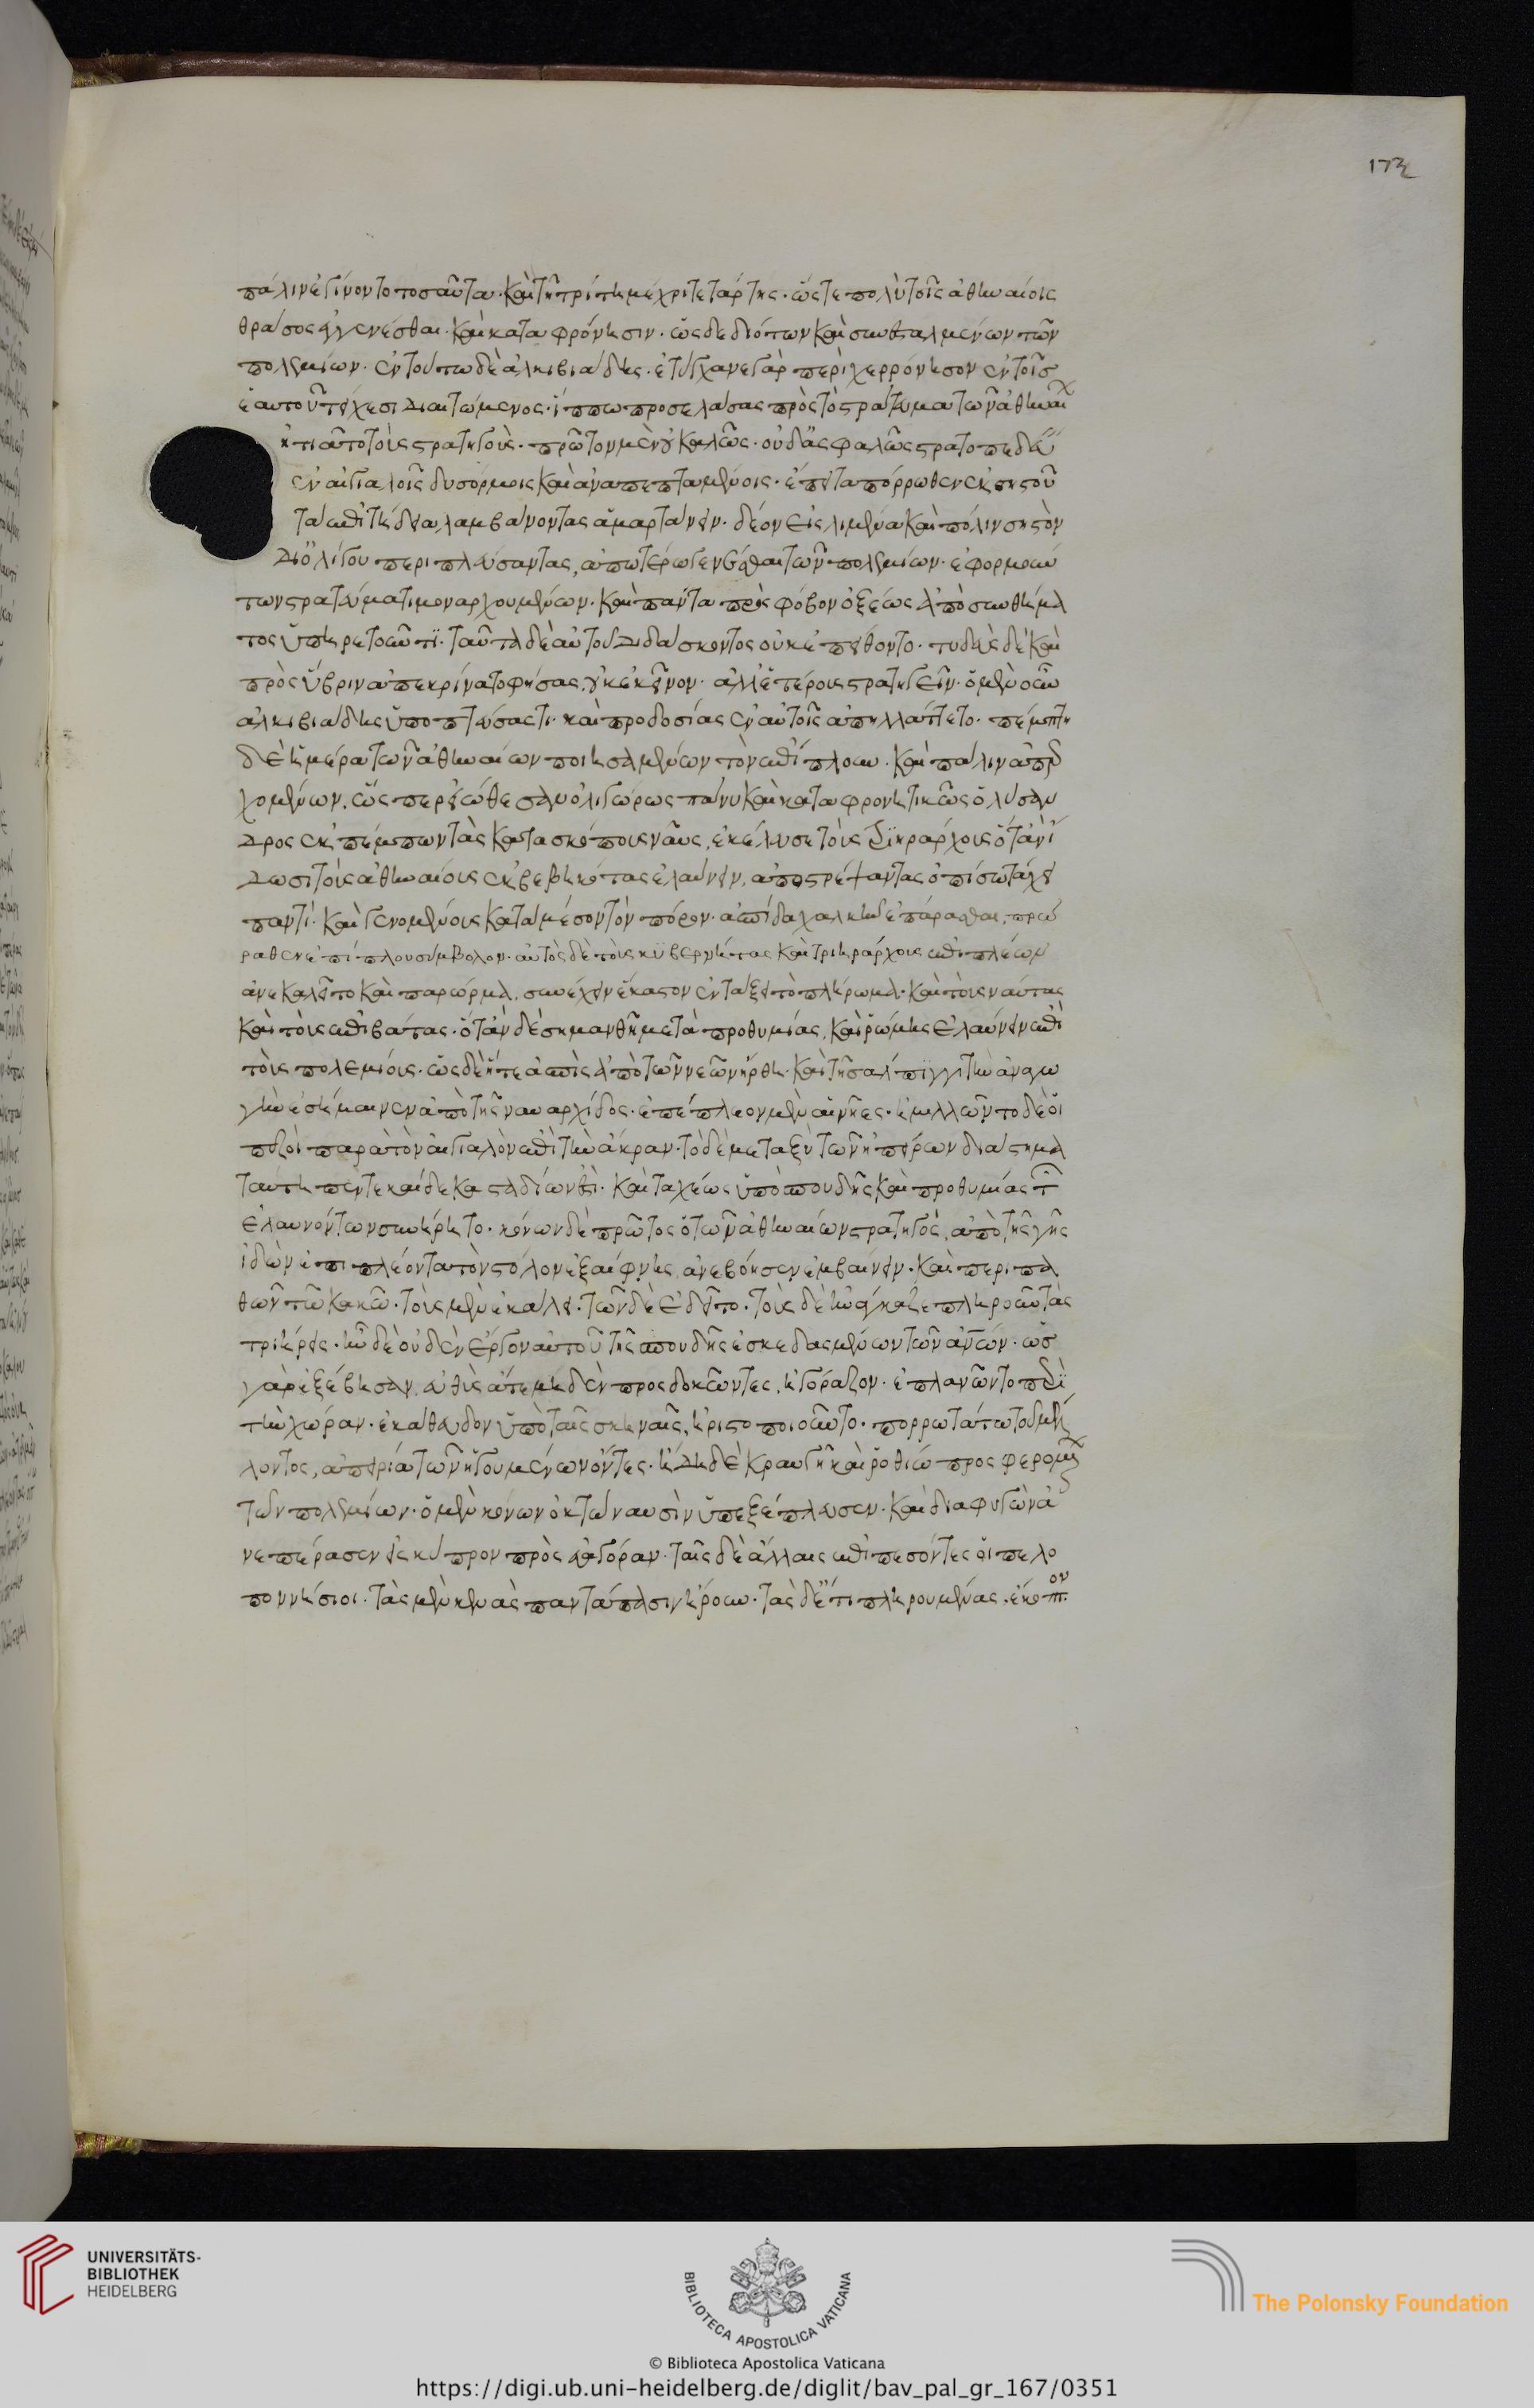 173
πάλιν ἐγίνοντο τοσαῦτα· καὶ τῆ τρίτη μέχρι τετάρτης· ὥστε πολὺ τοῖς ἀθηναίοις
θράσος ἐγγενέσθαι· καὶ καταφρόνησιν· ὡς δεδιότων καὶ συνεσταλμένων τῶν
πολεμίων· ἐν τούτω δὲ ἀλκιβιάδης· ἐτύγχανε γὰρ περὶ χερρόνησον ἐν τοῖς
ἑαυτοῦ τείχεσι διαιτώμενος· ἵππω προσελάσας πρὸς τὸ στράτευμα τῶν ἀθηναί
ἠτιᾶτο τοὺς στρατηγοὺς· πρῶτον μὲν οὐ καλῶς· οὐδ᾽ ἀσφαλῶς στρατοπεδεύ
ἐν αἰγιαλοῖς δυσόρμοις καὶ ἀναπεπταμένοις· ἔπειτα πόρρωθεν ἐκ σηστοῦ
τὰ ἐπιτήδεια λαμβάνοντας ἁμαρτάνειν· δέον εἰς λιμένα καὶ πόλιν σηστὸν
δι᾽ ὀλίγου περιπλεύσαντας, ἀπωτέρω γενέσθαι τῶν πολεμίων· ἐφορμούν
των στρατεύματι μοναρχουμένων· καὶ πάντα πρὸς φόβον ὀξέως ἀπὸ συνθήμα
τος ὑπηρετοῦντι· ταῦτα δὲ αὐτοῦ διδάσκοντος οὐκ ἐπείθοντο· τυδεὺς δὲ καὶ
πρὸς ὕβριν ἀπεκρίνατο φήσας, οὐκ ἐκεῖνον· ἀλλ᾽ ἑτέρους στρατηγεῖν· ὁ μὲν οὖν
ἀλκιβιάδης ὑποπτεύσας τι καὶ προδοσίας ἐν αὐτοῖς ἀπηλλάττετο· πέμπτη
δὲ ἡμέρα τῶν ἀθηναίων ποιησαμένων τὸν ἐπίπλουν· καὶ πάλιν ἀπερ
χομένων, ὥσπερ εἰώθεσαν ὀλιγώρως πάνυ καὶ καταφρονητικῶς ὁ λύσαν
δρος ἐκπέμπων τὰς κατασκόπους ναῦς, ἐκέλευσε τοὺς τριηράρχους ὅταν ἴ
δωσι τοὺς ἀθηναίους ἐκβεβηκότας ἐλαύνειν, ἀποστρέψαντας ὀπίσω τάχει
παντί· καὶ γενομένους κατὰ μέσον τὸν πόρον· ἀσπίδα χαλκῆν ἐπάρασθαι, πρώ
ραθεν ἐπίπλου σύμβολον· αὐτὸς δὲ τοὺς κυβερνήτας καὶ τριηράρχους ἐπιπλέων
ἀνεκαλεῖτο καὶ παρώρμα, συνέχειν ἕκαστον ἐν τάξει τὸ πλήρωμα· καὶ τοὺς ναύτας
καὶ τοὺς ἐπιβάτας· ὅταν δὲ σημανθῆ μετὰ προθυμίας, καὶ ῥώμης ἐλαύνειν ἐπὶ
τοὺς πολεμίους· ὡς δὲ ἥ τε ἀσπὶς ἀπὸ τῶν νεῶν ἤρθη· καὶ τῆ σάλπιγγι τὴν ἀναγω
γὴν ἐσήμαινεν ἀπὸ τῆς ναυαρχίδος· ἐπέπλεον μὲν αἱ νῆες· ἡμιλλῶντο δὲ οἱ
πεζοὶ παρὰ τὸν αἰγιαλὸν ἐπὶ τὴν ἄκραν· τὸ δὲ μεταξὺ τῶν ἠπείρων διάστημα
ταύτη πεντεκαίδεκα σταδίων ἐστὶ· καὶ ταχέως ὑπὸ σπουδῆς καὶ προθυμίας τῶν
ἐλαυνόντων συνήρητο· κόνων δὲ πρῶτος ὁ τῶν ἀθηναίων στρατηγὸς, ἀπὸ τῆς γῆς
ἰδὼν ἐπιπλέοντα τὸν στόλον ἐξαίφνης, ἀνεβόησεν ἐμβαίνειν· καὶ περιπα
θῶν τῶ κακῶ· τοὺς μὲν ἐκάλει· τῶν δὲ ἐδεῖτο· τοὺς δὲ ἠνάγκαζε πληροῦν τὰς
τριήρεις· ἦν δὲ οὐδὲν ἔργον αὐτοῦ τῆς σπουδῆς ἐσκεδασμένων τῶν ἀνθρώπων· ὡς
γὰρ ἐξέβησαν, εὐθὺς ἅτε μηδὲν προσδοκῶντες, ἠγόραζον· ἐπλανῶντο περὶ
τὴν χώραν· ἐκάθευδον ὑπὸ ταῖς σκηναῖς, ἠριστοποιοῦντο· πορρωτάτω τοῦ μέλ
λοντος, ἀπειρία τῶν ἡγουμένων ὄντες· ἤδη δὲ κραυγῆ καὶ ῥοθίω προσφερομένων
τῶν πολεμίων· ὁ μὲν κόνων ὀκτὼ ναυσὶν ὑπεξέπλευσεν· καὶ διαφυγὼν ἀ
νεπέρασεν εἰς κύπρον πρὸς εὐαγόραν· ταῖς δὲ ἄλλαις ἐπιπεσόντες οἱ πελο
ποννήσιοι· τὰς μὲν κενὰς παντάπασιν ἥρουν· τὰς δ᾽ ἔτι πληρουμένας, ἔκοπτον
UNIVERSITÄTS-
BIBLIOTHEK
HEIDELBERG
BIBLIOTECA APOSTOLICA VATICANA
The Polonsky Foundation
© Biblioteca Apostolica Vaticana
https://digi.ub.uni-heidelberg.de/diglit/bav_pal_gr_167/0351